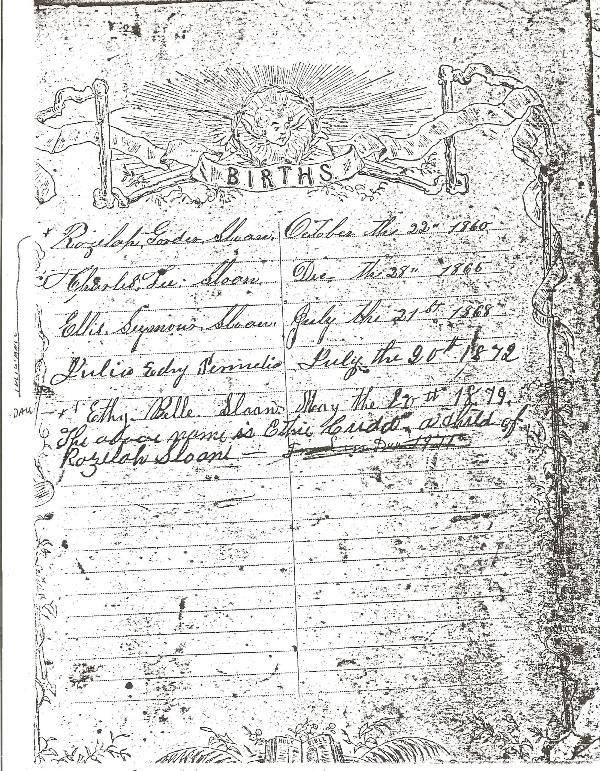 BIRTHS
Rozelah Gorden Sloan. October the 22" 1860
Charles Lee. Sloan. Dec. the 28" 1866
Ellis Seymour Sloan. July the 21st 1868
Julia Edry July the 20t 1872
Ethy Belle. Sloan May the 20th 1879.
The above name is Ethie a child of
Rozelah Sloans
DAU
HOLY